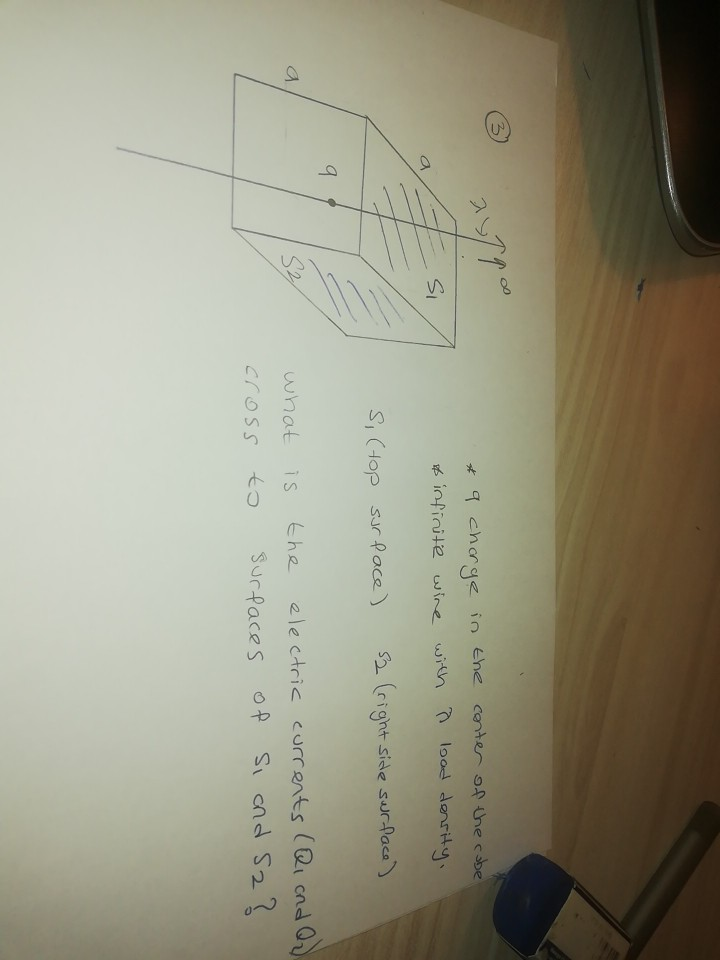 3
λ ∞
a
S1
a
q
S2
* q charge in the center of the cube
* infinite wire with λ load density.
S1 (top surface) S2 (right side surface)
what is the electric currents (Q1 and Q2)
cross to surfaces of S1 and S2?